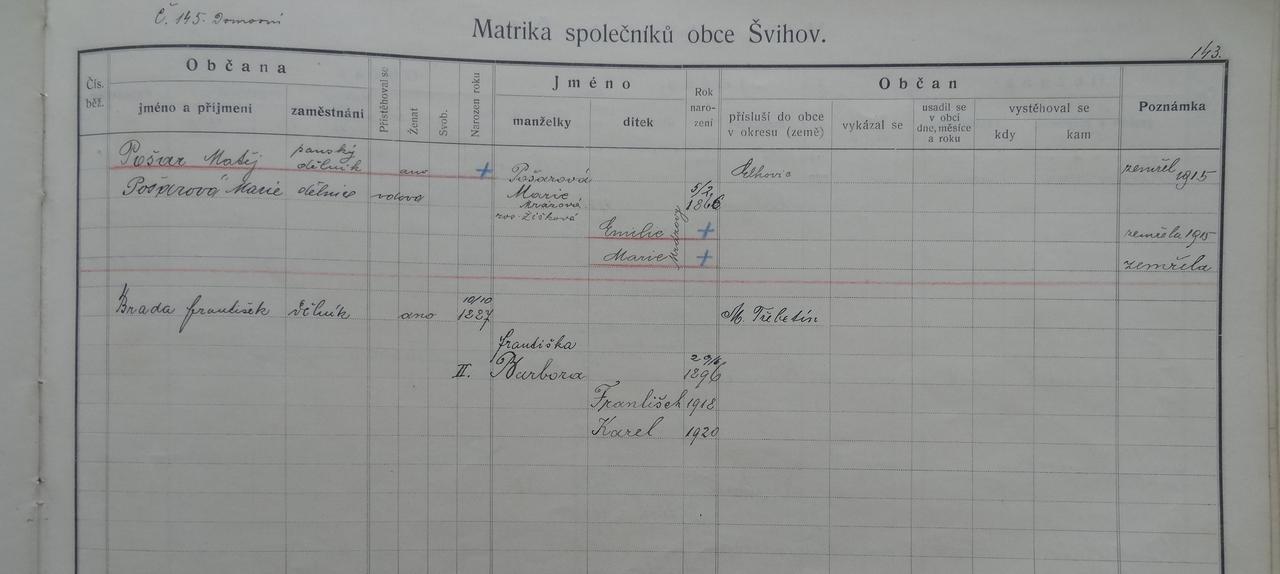 Č. 145. Domovní
Matrika společníků obce Švihov.
143.
Čís. běž.
Občana
Jméno
Občan
Poznámka
jméno a příjmení
zaměstnání
Přistěhoval se
Ženat
Svob.
Narozen roku
manželky
dítek
Rok naro- zení
přísluší do obce v okresu (země)
vykázal se
usadil se v obci dne, měsíce a roku
vystěhoval se
kdy
kam
Pošar Matěj
panský dělník
ano
+
Pošarová
zemřel 1915
Pošarová Marie
dělnice
vdova
Marie
5/2 1866
roz. Žišková
Emilie
+
zemřela 1915
Marie
+
zemřela
Brada František
ano
10/10 1887
M. Třebetín
Františka
II.
Barbora
1896
František
1918
Karel
1920